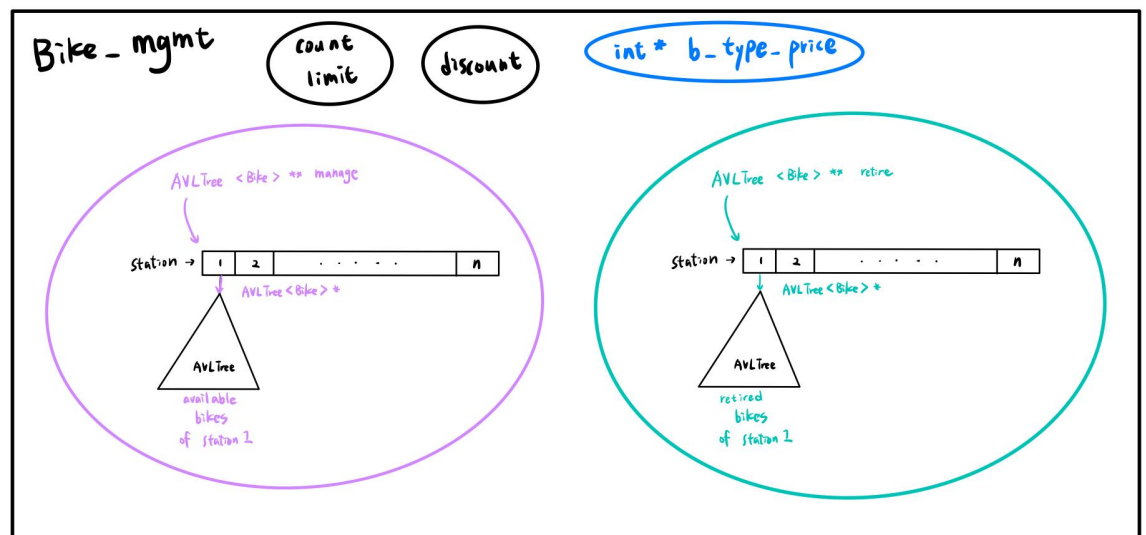 Bike_mgmt
count
limit
discount
int* b_type_price
AVLTree <Bike> ** manage
station → 1 2 ..... n
AVLTree<Bike> *
AVLTree
available
bikes
of station 1
AVLTree <Bike> ** retire
station → 1 2 ..... n
AVLTree<Bike> *
AVLTree
retired
bikes
of station 1